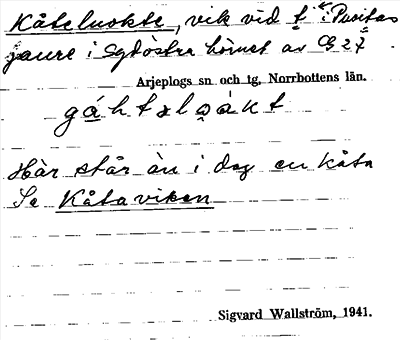 Kåteluokte, vik vid t i Puoitas
jaure i sydöstra hörnet av CG 27
Arjeplogs sn och tg, Norrbottens län.
gáhtəlu̯åkt
Här står än i dag en kåta
Se Kåtaviken
Sigvard Wallström, 1941.